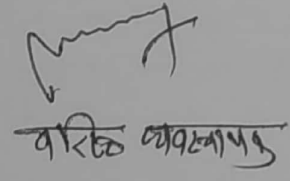 वरिष्ठ व्यवस्थापक